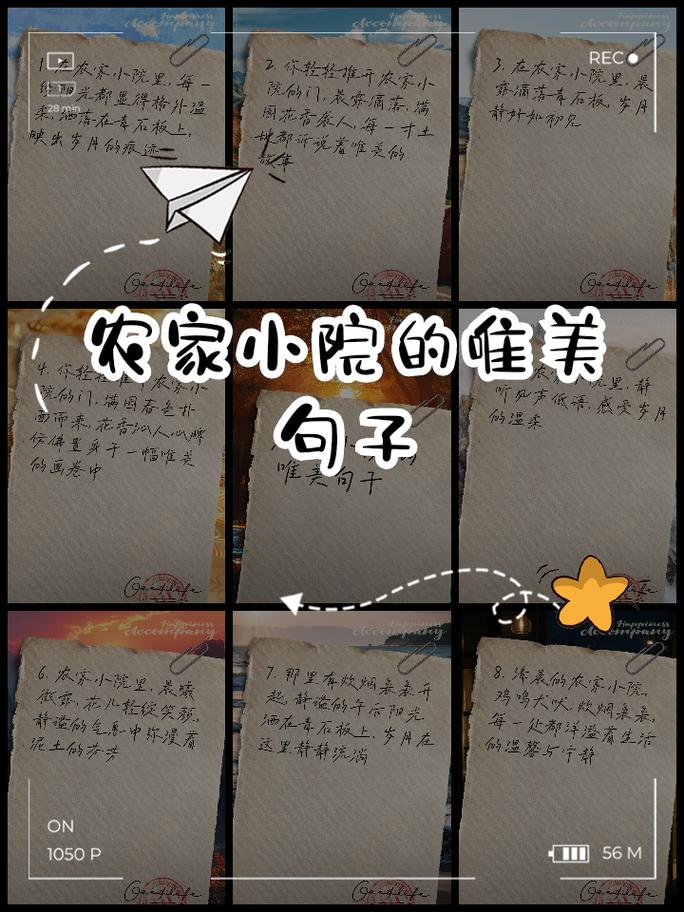 Happiness
Accompany
Happiness
Accompany
REC
28 min
1.在农家小院里,每一
阳光都显得格外温
柔,洒落在青石板上,
映出岁月的痕迹
2.你轻轻推开农家小
院的门,晨露滴落,满
园花香袭人,每一寸土
地都诉说着唯美的
故事
3.在农家小院里,晨
露滴落青石板,岁月
静好如初见
Goodlife
Goodlife
Goodlife
农家小院的唯美
句子
4.你轻轻推开农家小
院的门,满园春色扑
面而来,花香沁人心脾
仿佛置身于一幅唯美
的画卷中
唯美句子
农家小院里,静
听风声低语,感受岁月
的温柔
Goodlife
Happiness
Accompany
Happiness
Accompany
Happiness
Accompany
6.农家小院里,晨曦
微露,花儿轻绽笑颜,
静谧的气息中弥漫着
泥土的芬芳
7.那里有炊烟袅袅升
起,静谧的午后阳光
洒在青石板上,岁月在
这里静静流淌
8.清晨的农家小院,
鸡鸣犬吠,炊烟袅袅,
每一处都洋溢着生活
的温馨与宁静
ON
1050 P
56 M
Goodlife
Goodlife
Goodlife